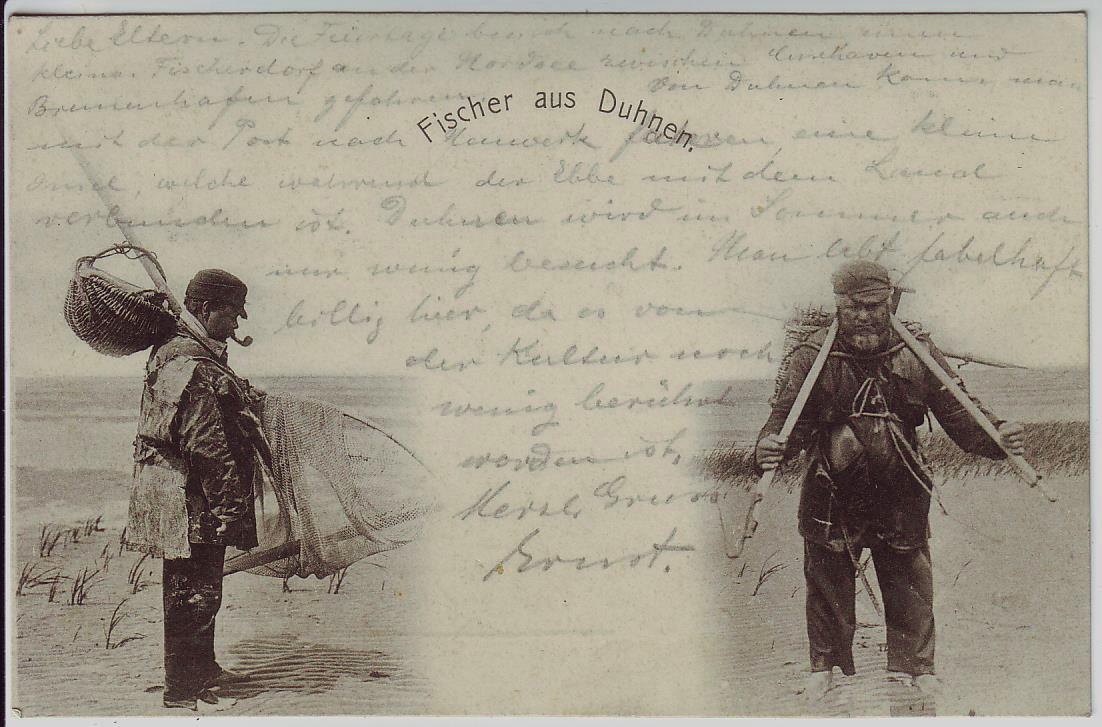 Liebe Eltern. Die Feiertage bin ich nach Duhnen einem
kleinen Fischerdorf an der Nordsee zwischen Cuxhaven und
Bremerhafen gefahren. Von Duhnen kann man
Fischer aus Duhnen.
mit der Post nach Neuwerk fahren, eine kleine
Insel, welche während der Ebbe mit dem Land
verbunden ist. Duhnen wird im Sommer auch
nur wenig besucht. Man lebt fabelhaft
billig hier, da es von
der Kultur noch
wenig berührt
worden ist.
Herzl. Gruss
Ernst.